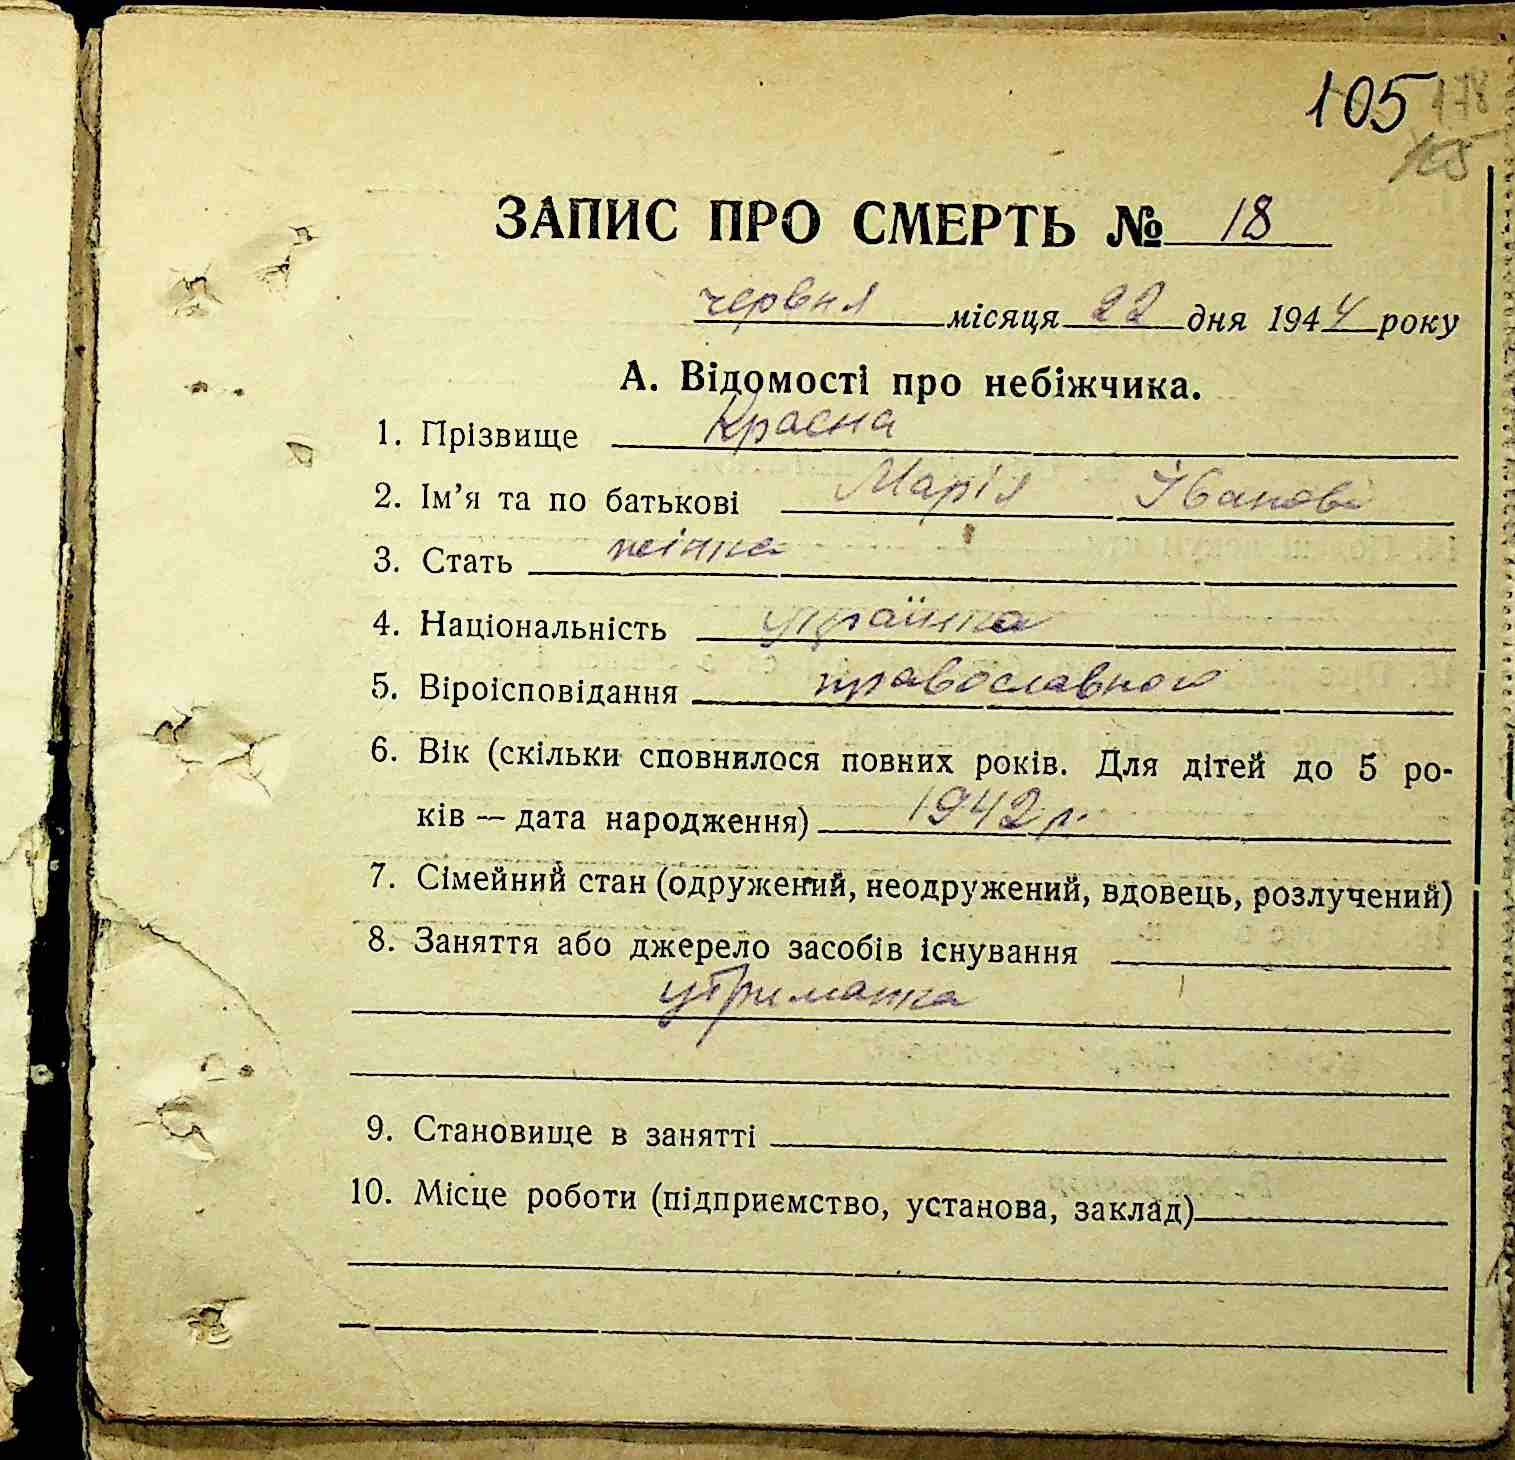 105 178
105
ЗАПИС ПРО СМЕРТЬ № 18
червня місяця 22 дня 1944 року
А. Відомості про небіжчика.
1. Прізвище Красна
2. Ім’я та по батькові Марія Іванові
3. Стать жінка
4. Національність українка
5. Віроісповідання православного
6. Вік (скільки сповнилося повних років. Для дітей до 5 ро-
ків — дата народження) 1942 р.
7. Сімейний стан (одружений, неодружений, вдовець, розлучений)
8. Заняття або джерело засобів існування
утриманка
9. Становище в занятті
10. Місце роботи (підприємство, установа, заклад)